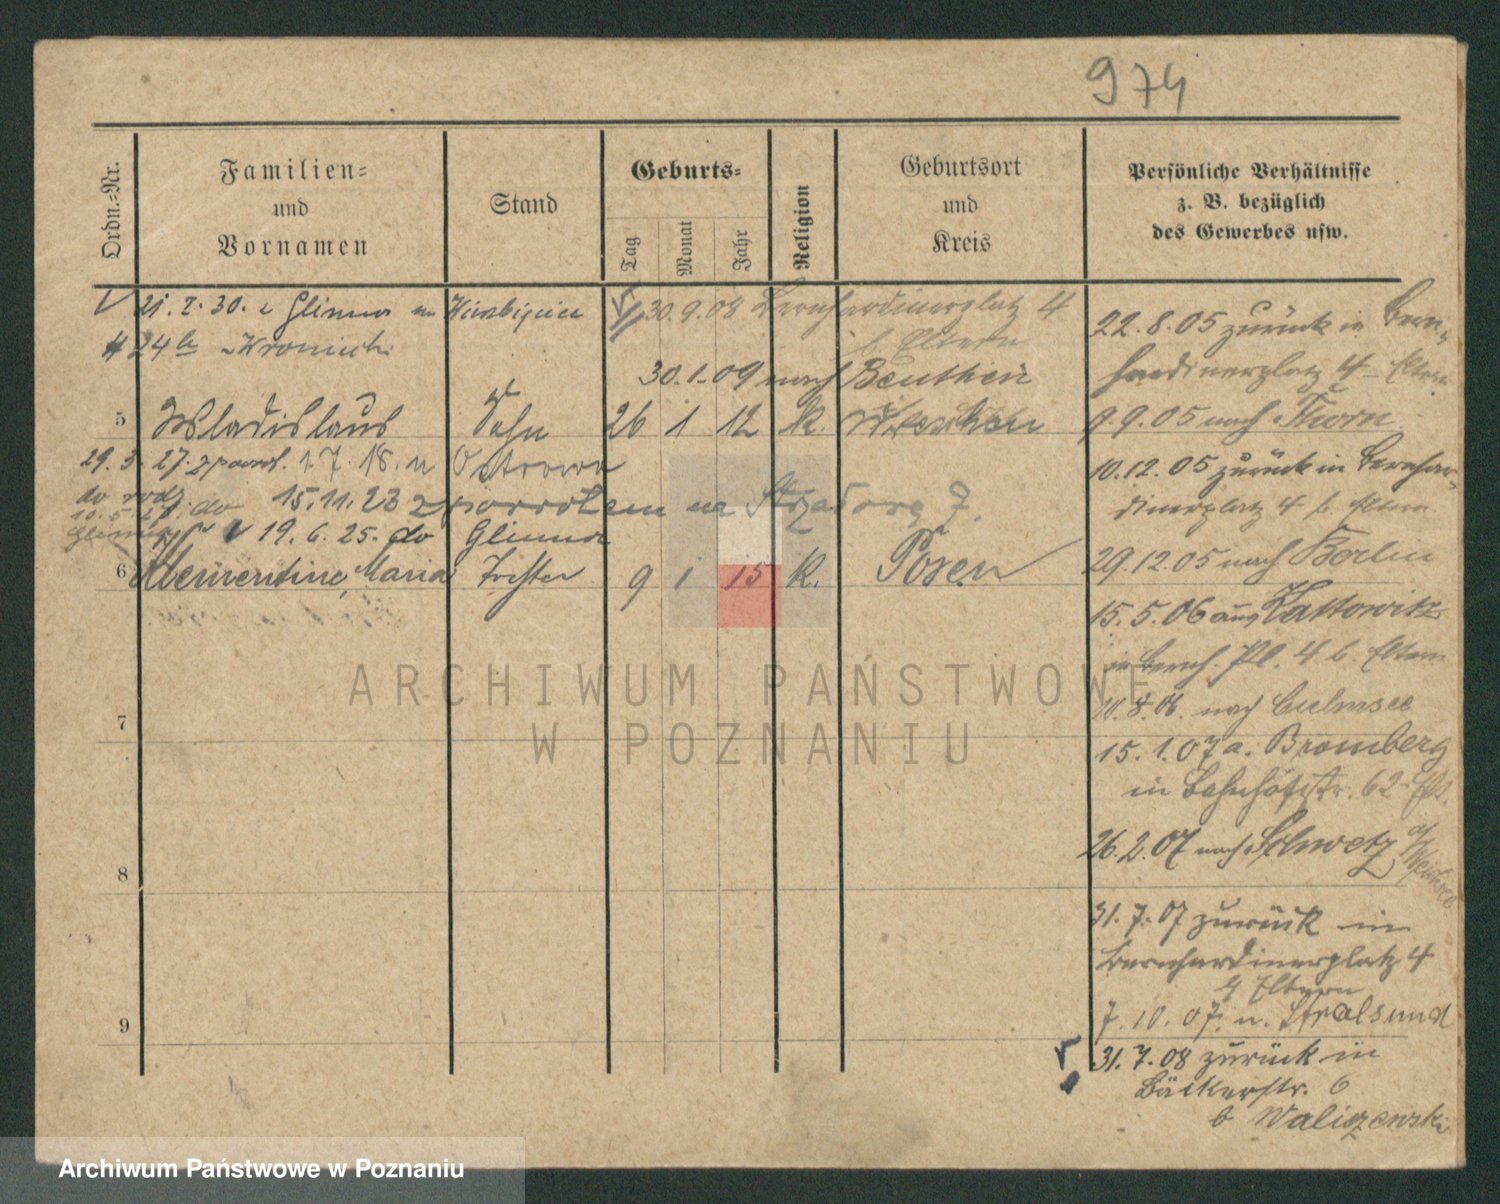 974
Ordn.-Nr.
Familien-
und
Vornamen
Stand
Geburts-
Tag
Monat
Jahr
Religion
Geburtsort
und
Kreis
Persönliche Verhältnisse
z. B. bezüglich
des Gewerbes usw.
30.9.08 Bernhardinerplatz 4
b Eltern
30.1.09 nach Beuthen
5 Wladislaus Sohn 26 1 12 k.
29.3.27. 17.18. n Ostrowo
do rodz. do 15.11.23 z powrotem na
19.6.25. do Glinno
6 Klementine, Maria Tochter 9 1 15 k. Posen
7
8
9
22.8.05 zurück in Bern-
hardinerplatz 4 Eltern
9.9.05 nach Thorn
10.12.05 zurück in Bernhar-
dinerplatz 4 b. Eltern
29.12.05 nach Berlin
15.5.06 aus Kattowitz
in Bernh. Pl. 4 b. Eltern
10.8.06. nach Culmsee
15.1.07 a. Bromberg
in Bahnhofstr. 62
26.2.07 nach Schwetz a/ Weichsel
31.7.07 zurück in
Bernhardinerplatz 4
b Eltern
7.10.07. n. Stralsund
31.7.08 zurück in
Bäckerstr. 6
b
ARCHIWUM PAŃSTWOWE
W POZNANIU
Archiwum Państwowe w Poznaniu